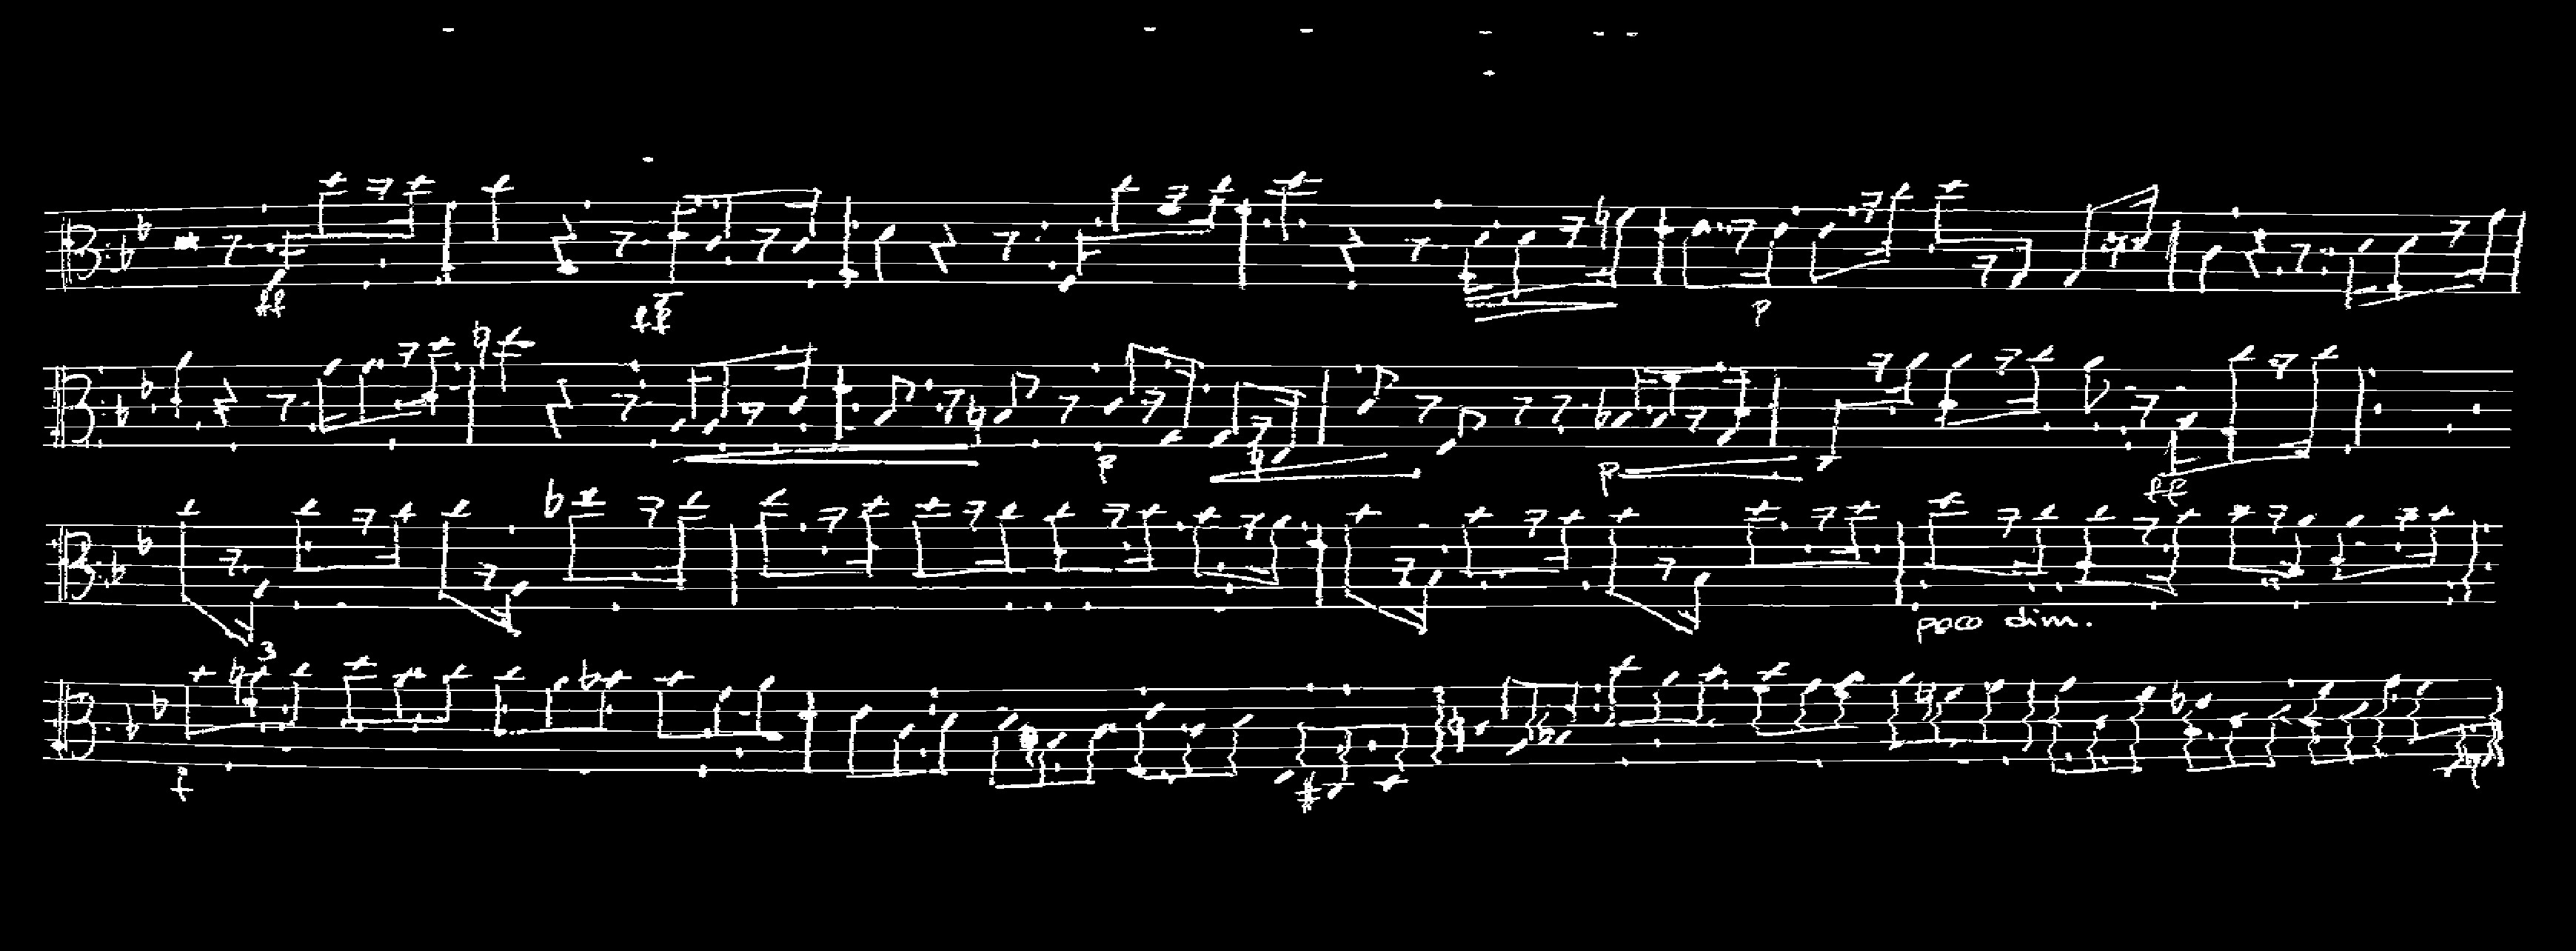 ff ff p
p p ff
3 poco dim.
f